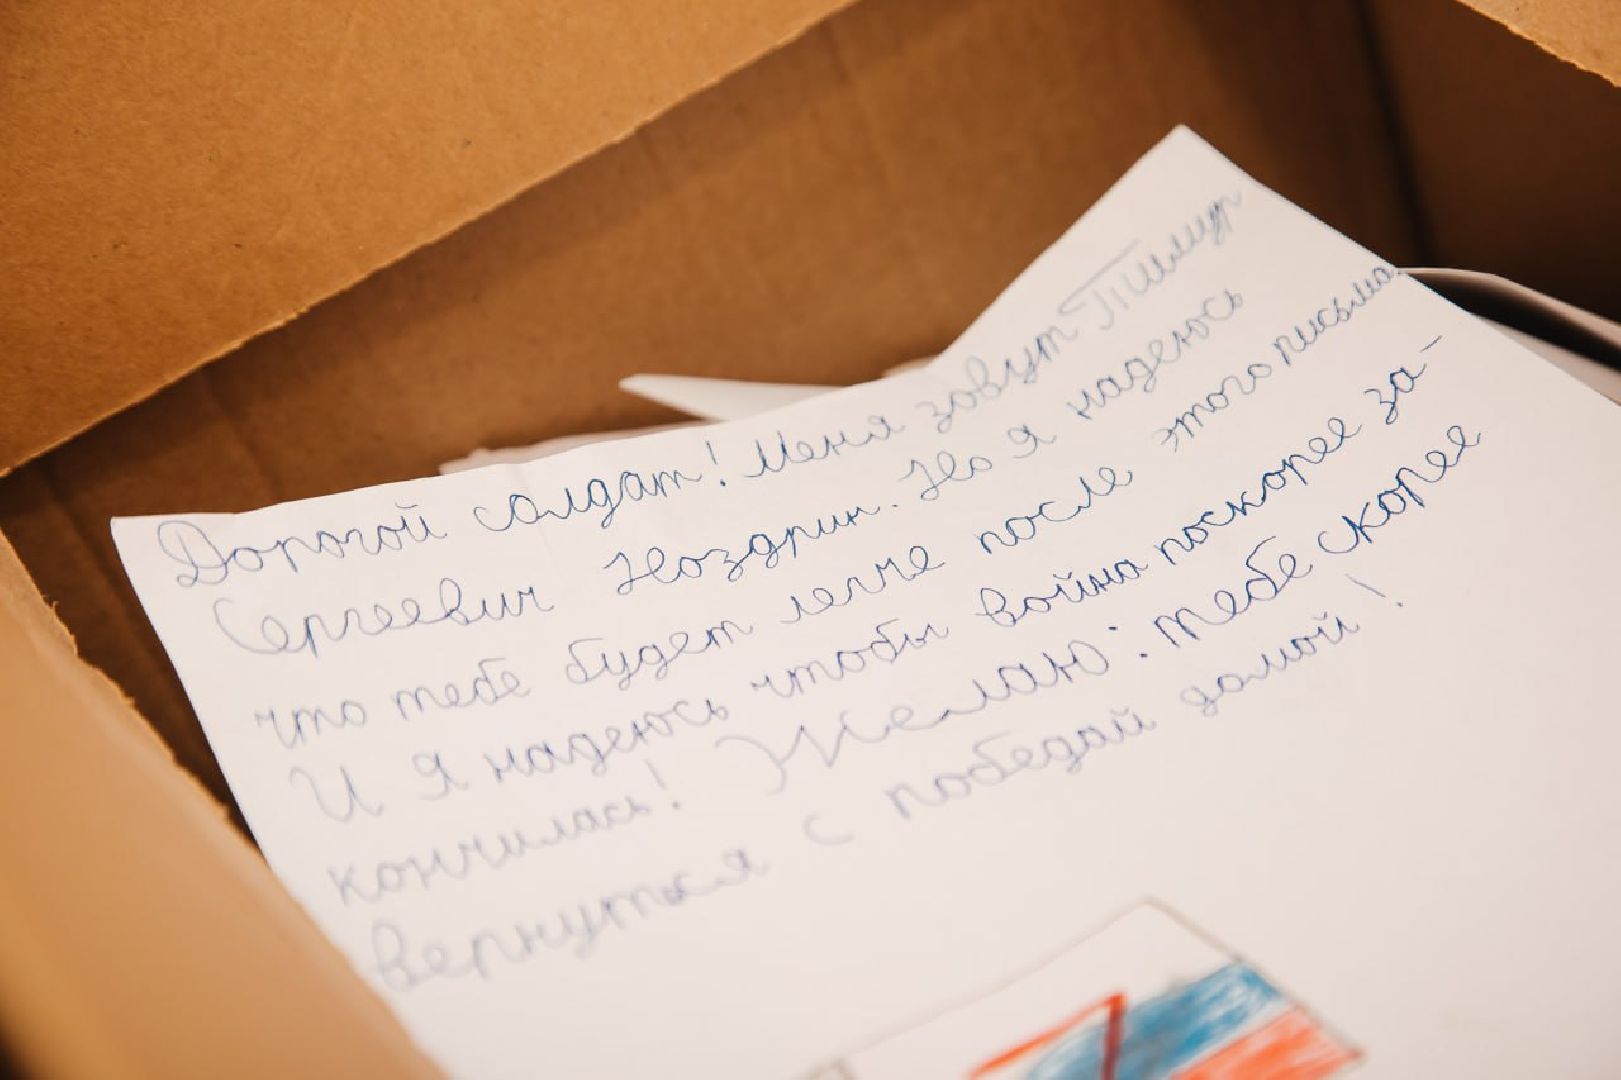 Дорогой солдат! Меня зовут Тимур
Сергеевич Ноздрин. Но я надеюсь
что тебе будет легче после этого письма.
И я надеюсь чтобы война поскорее за-
кончилась! Желаю: тебе скорее
вернуться с победай домой!